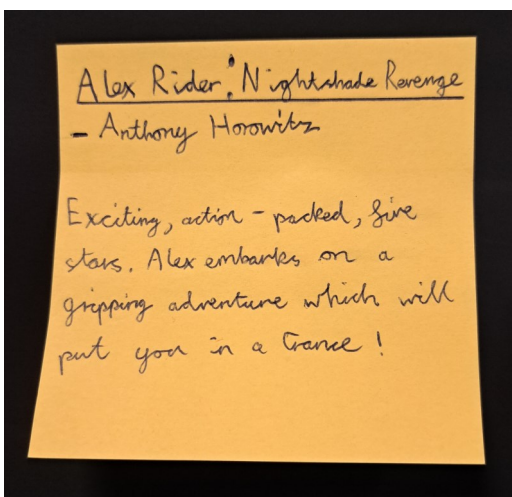 Alex Rider: Nightshade Revenge
- Anthony Horowitz
Exciting, action - packed, five
stars. Alex embarks on a
gripping adventure which will
put you in a trance!